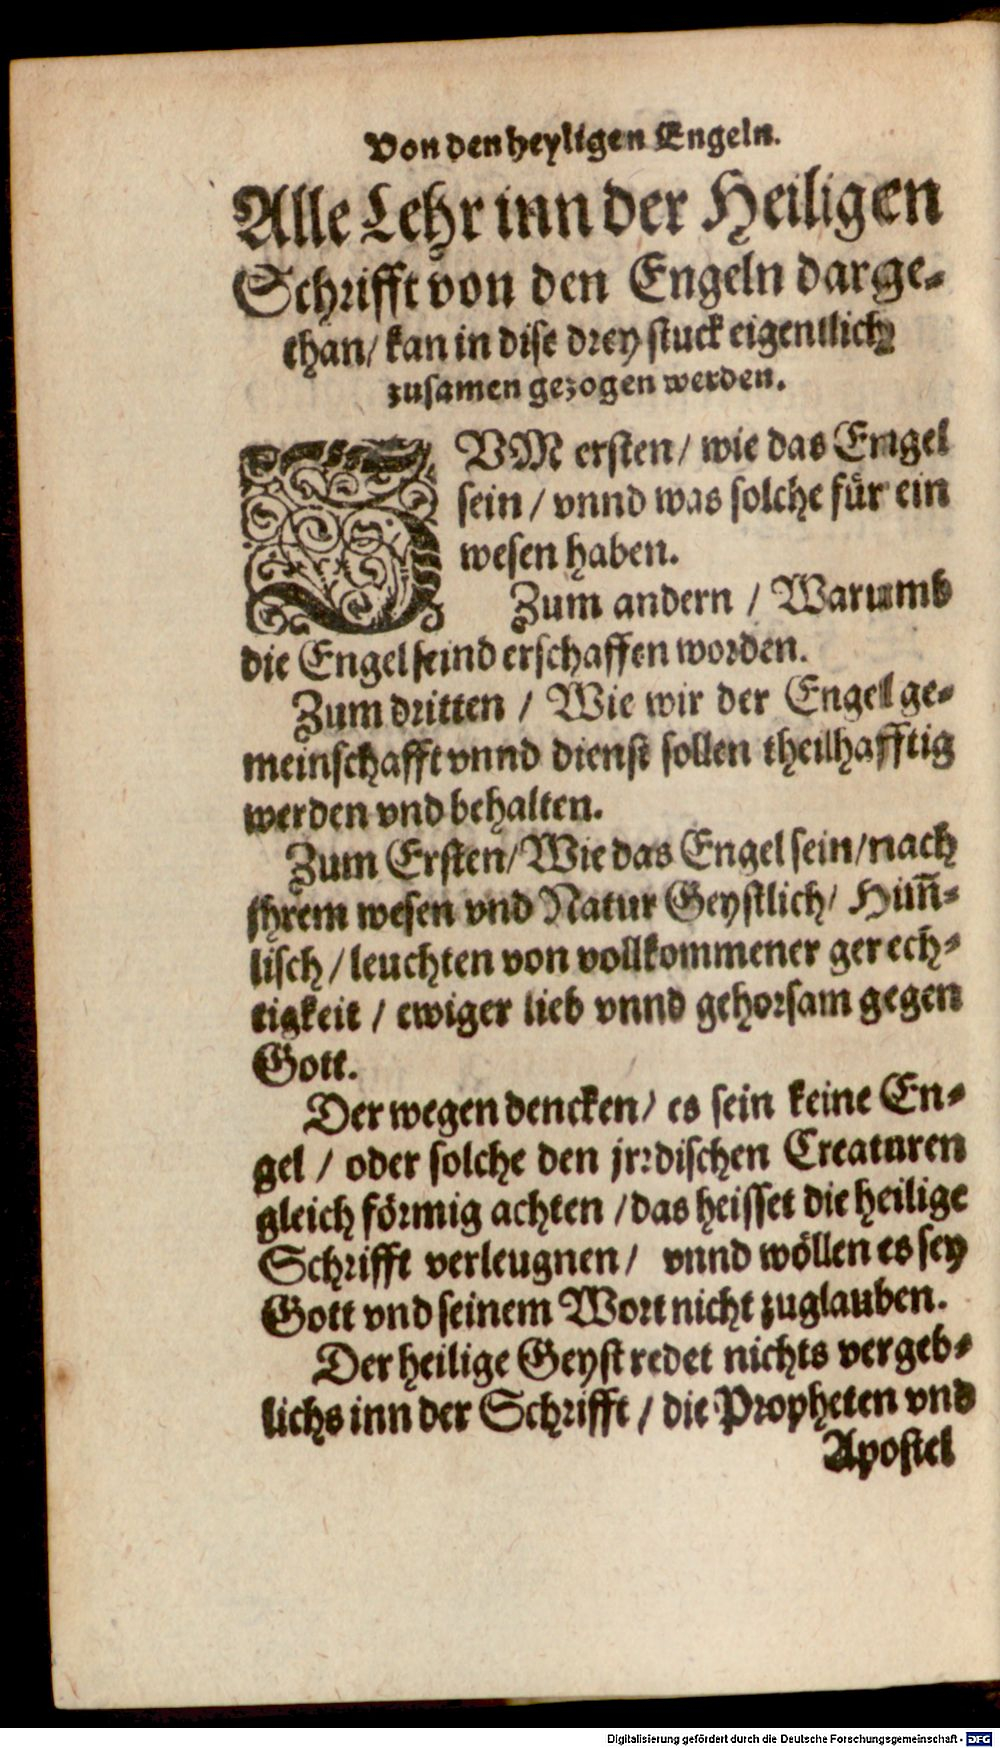 Von den heyligen Engeln.
Alle Lehr inn der Heiligen
Schrifft von den Engeln darge-
than/ kan in dise drey stuck eigentlich
zusamen gezogen werden.
ZVM ersten/ wie das Engel
sein/ vnnd was solche für ein
wesen haben.
Zum andern / Warumb
die Engel seind erschaffen worden.
Zum dritten / Wie wir der Engel ge-
meinschafft vnnd dienst sollen theilhafftig
werden vnd behalten.
Zum Ersten/ Wie das Engel sein/ nach
jhrem wesen vnd Natur Geystlich/ Him̃-
lisch/ leuchten von vollkommener gerech-
tigkeit / ewiger lieb vnnd gehorsam gegen
Gott.
Der wegen dencken/ es sein keine En-
gel / oder solche den jrrdischen Creaturen
gleich förmig achten / das heisset die heilige
Schrifft verleugnen/ vnnd wöllen es sey
Gott vnd seinem Wort nicht zuglauben.
Der heilige Geyst redet nichts vergeb-
lichs inn der Schrifft / die Propheten vnd
Apostel
Digitalisierung gefördert durch die Deutsche Forschungsgemeinschaft - DFG